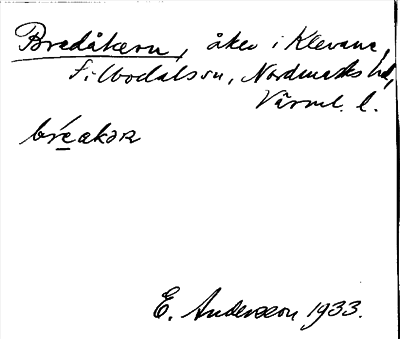 Bredåkern, åker i Klevane,
Silbodals sn, Nordmarks hd,
Värml. l.
breakəʀ
E. Andersson 1933.